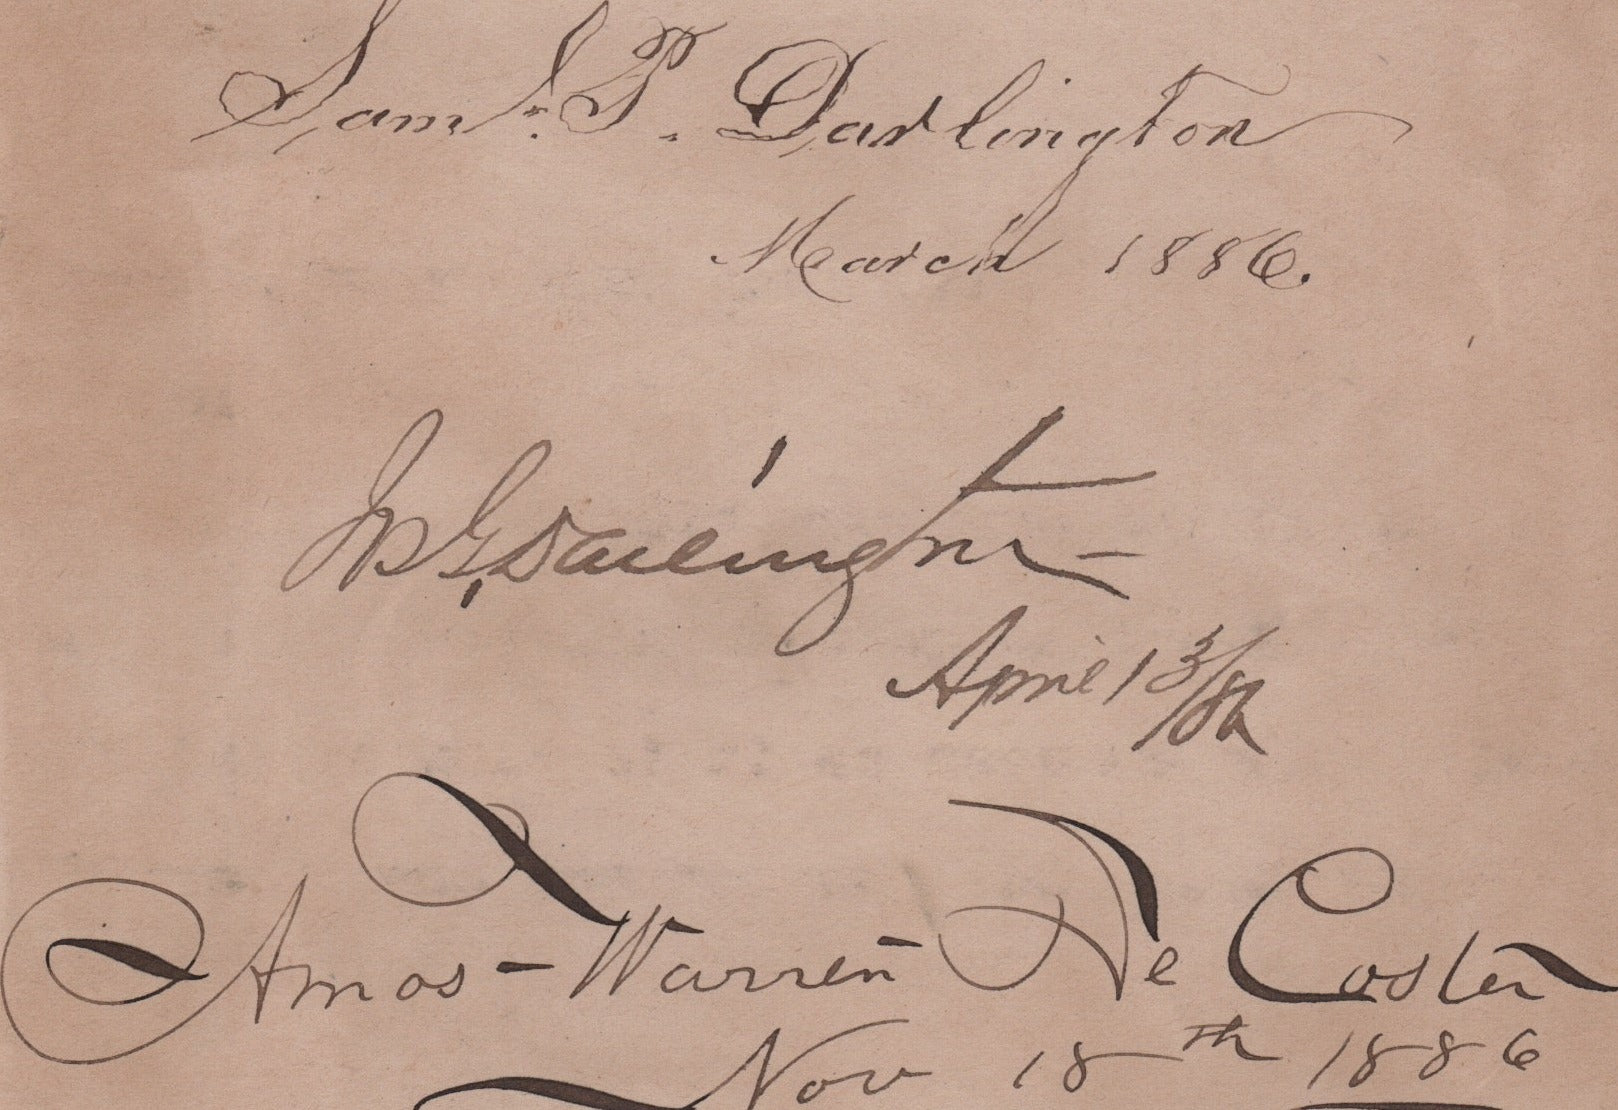 Saml. P. Darlington
March 1886.
G. Darlington
April 13/86
Amos - Warren De Coster
Nov 18th 1886